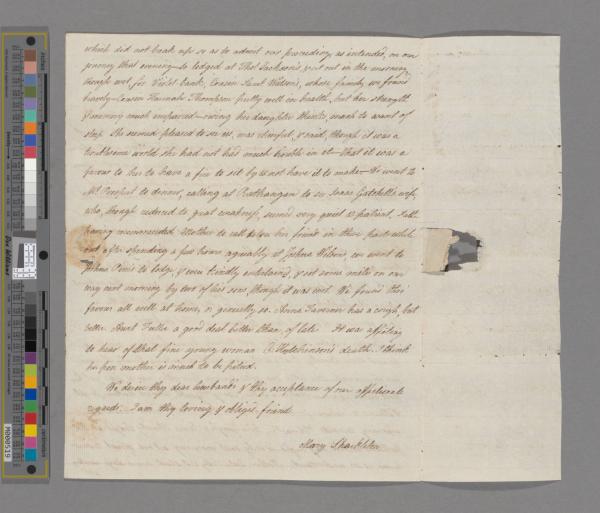 which did not break up so as to admit our proceeding, as intended, on our
journey that evening—so lodged at Thos Jackson's, & set out in the morning,
though wet, for Violet-bank, Cousin Saml Watson's, whose family we found
bravely—Cousin Hannah Thompson pretty well in health, but her strength
& memory much impaired—owing her daughter thinks, much to want of
sleep. She seemed pleased to see us, was cheerful, & said, though it was a
troublesome world she had not had much trouble in it—That it was a
favour to her to have a fire to sit by & not have it to make—We went to
Mt Prospect to dinner, calling at Rathangan to see Isaac Gatchell's wife,
who, though reduced to great weakness, seem'd very quiet & patient,
having recommended Mother to call to see her friend in these parts
out after spending a few hours agreeably at Joshua Wilson's, we went to
to lodge, & were kindly entertained, & set some miles on our
way next morning by two of his sons, though it was wet. We found thro'
favour all well at home, or generally so. Anna Taverner has a cough, but
better. Aunt Fuller a good deal better than of late. It was affecting
to hear of that fine young woman Hutchinson's death. I think
her poor mother is much to be pitied.
We desire thy dear husband's & thy acceptance of our affectionate
regards. I am thy loving & obliged friend
Mary Shackleton
inches
centimetres
M000519